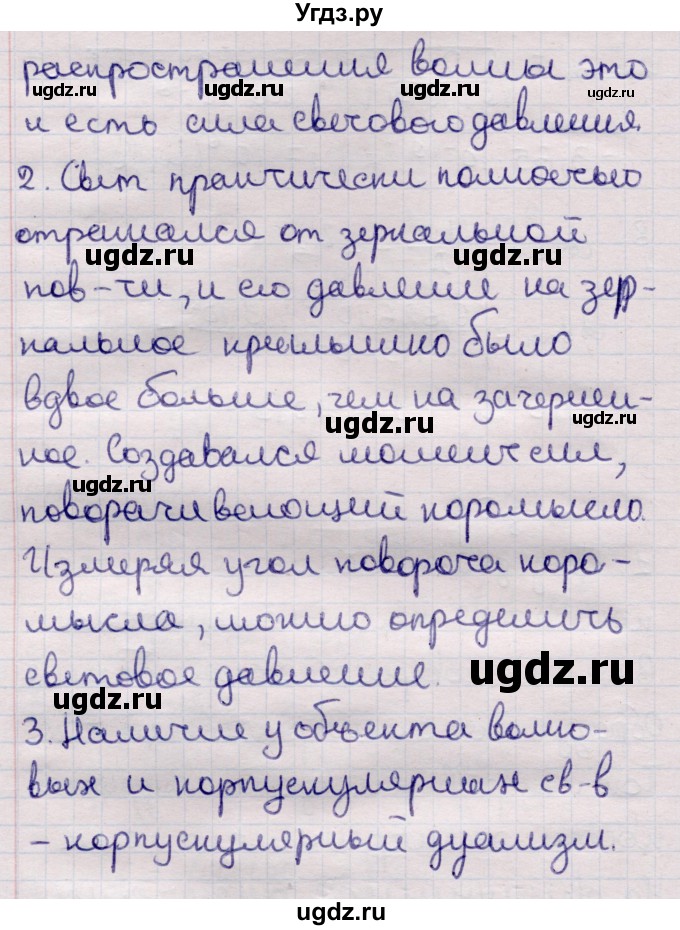 Угдз.ру
распространения волны это
и есть сила светового давления.
2. Свет практически полностью
отражался от зеркальной
пов-ти, и его давление на зер-
кальное крылышко было
вдвое больше, чем на зачернен-
ное. Создавался момент сил,
поворачивающий коромысло.
Измеряя угол поворота коро-
мысла, можно определить
световое давление.
3. Наличие у объекта волно-
вых и корпускулярных св-в
– корпускулярный дуализм.
ugdz.ru
ugdz.ru
ugdz.ru
ugdz.ru
ugdz.ru
ugdz.ru
ugdz.ru
ugdz.ru
ugdz.ru
ugdz.ru
ugdz.ru
ugdz.ru